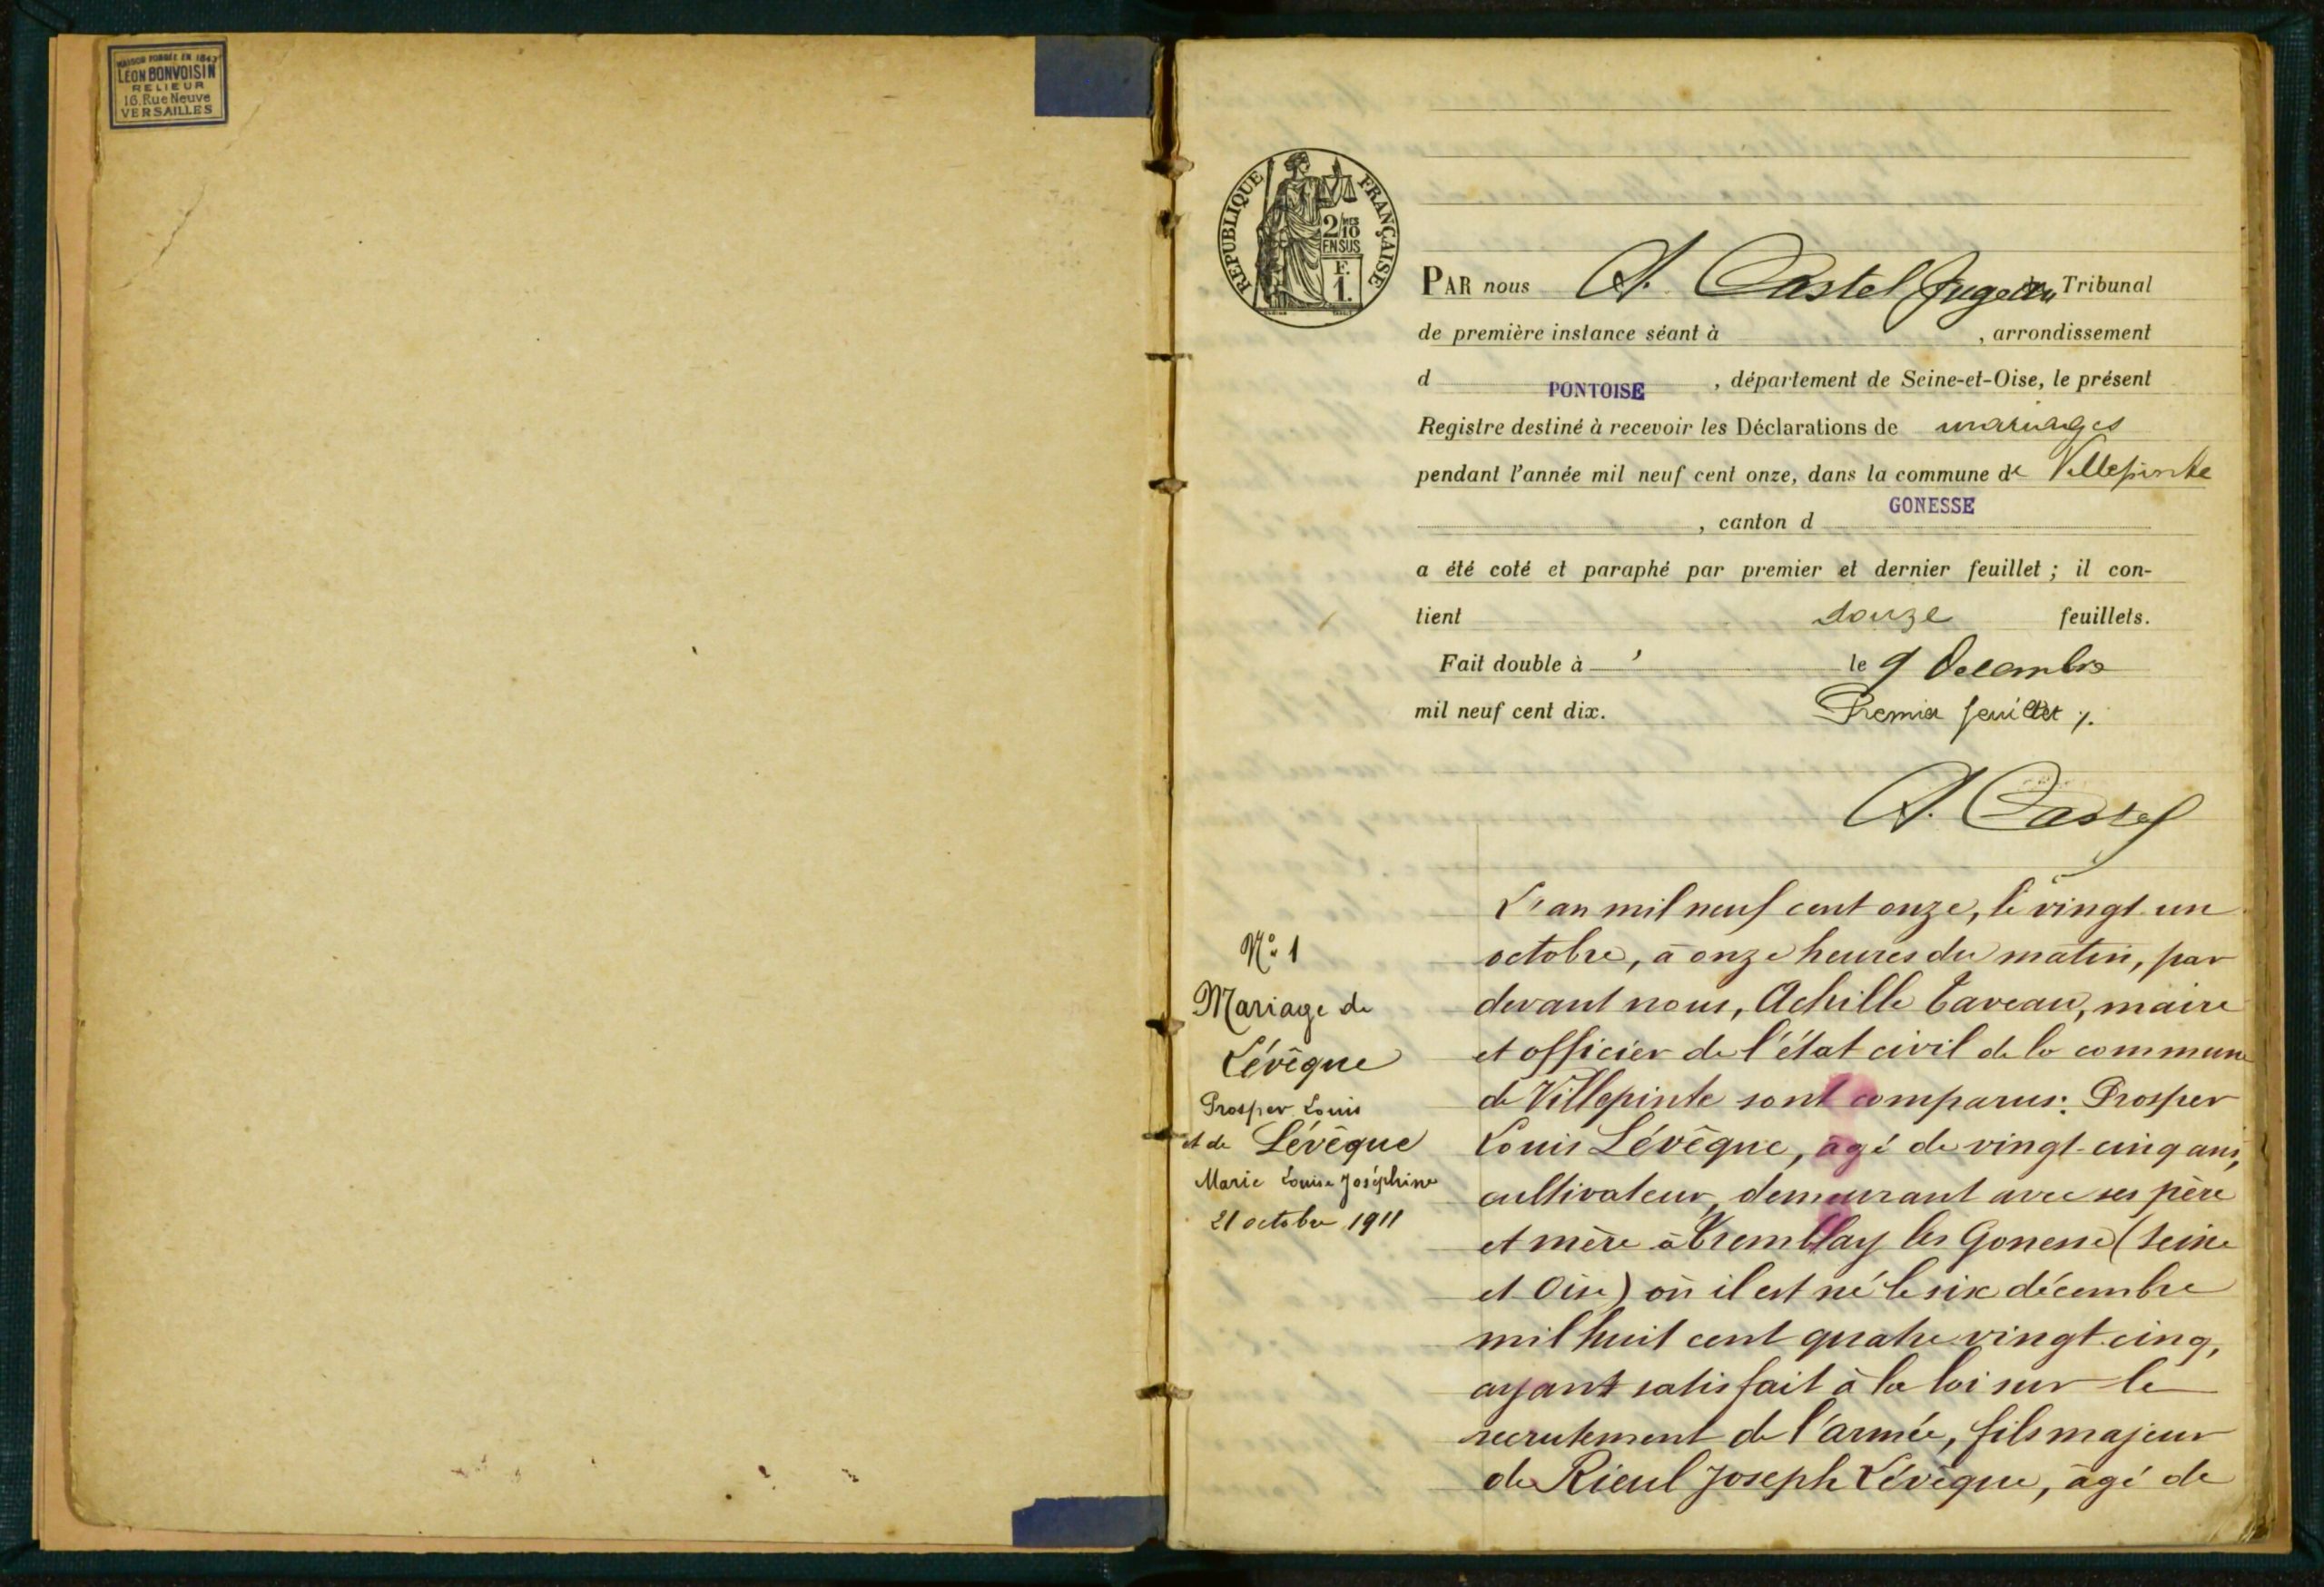 MAISON FONDÉE EN 1847
LÉON BONVOISIN
RELIEUR
16, Rue Neuve
VERSAILLES
RÉPUBLIQUE FRANÇAISE
2/10 MES
EN SUS
F.
1.
PAR nous A. Castel Juge au Tribunal
de première instance séant à , arrondissement
d PONTOISE , département de Seine-et-Oise, le présent
Registre destiné à recevoir les Déclarations de mariages
pendant l'année mil neuf cent onze, dans la commune de Villepinte
, canton d GONESSE
a été coté et paraphé par premier et dernier feuillet ; il con-
tient douze feuillets.
Fait double à le 9 Décembre
mil neuf cent dix. Premier feuillet /.
A. Castel
N° 1
Mariage de
Lévêque
Prosper Louis
et de Lévêque
Marie Louise Joséphine
21 octobre 1911
L'an mil neuf cent onze, le vingt un
octobre, à onze heures du matin, par
devant nous, Achille Taveau, maire
et officier de l'état civil de la commune
de Villepinte sont comparus: Prosper
Louis Lévêque, âgé de vingt-cinq ans,
cultivateur, demeurant avec ses père
et mère à Tremblay les Gonesse (Seine
et Oise) où il est né le six décembre
mil huit cent quatre vingt cinq,
ayant satisfait à la loi sur le
recrutement de l'armée, fils majeur
de Rieul Joseph Lévêque, âgé de